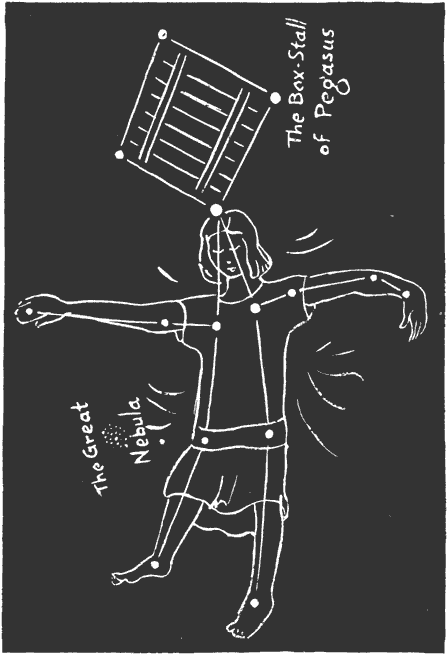 The Box-Stall
of Pegasus
The Great
Nebula